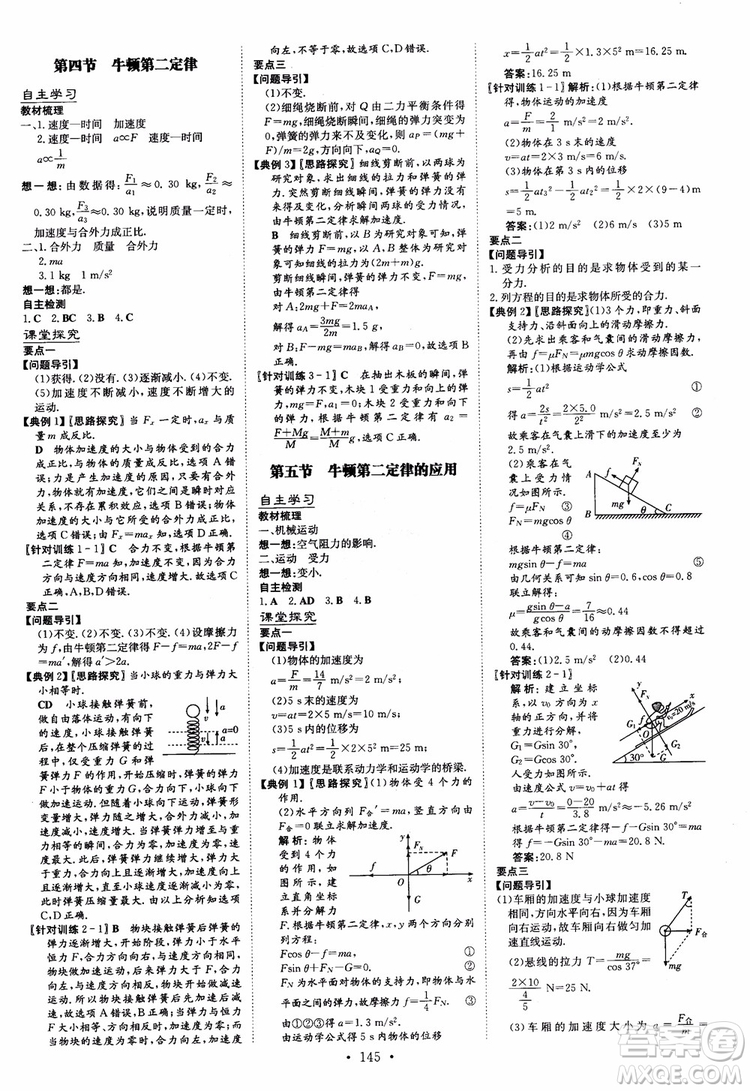 第四节 牛顿第二定律
自主学习
教材梳理
一、1.速度—时间 加速度
2.速度—时间 a∝F 速度—时间
a∝1/m
想一想:由数据得:F₁/a₁≈0.30 kg,F₂/a₂≈
0.30 kg,F₃/a₃≈0.30 kg,说明质量一定时,
加速度与合外力成正比.
二、1.合外力 质量 合外力
2.ma
3.1 kg 1 m/s²
想一想:都是.
自主检测
1.C 2.BC 3.D 4.C
课堂探究
要点一
【问题导引】
(1)获得.(2)没有.(3)逐渐减小.(4)不变.
(5)加速度不断减小,速度不断增大的
运动.
【典例1】【思路探究】 当Fₓ一定时,aₓ与质
量m成反比.
D 物体加速度的大小与物体受到的合
外力、质量有关,与速度无关,选项A错
误;力是产生加速度的原因,只要有力,
就会产生加速度,选项B错误;物体加
速度的大小与它所受的合力成正比,选
项C错误;由Fₓ=maₓ知,选项D正确.
【针对训练1-1】C 合力不变,根据牛顿第
二定律F=ma知,加速度不变,速度增大.
故C正确,A、B、D错误.
要点二
【问题导引】
(1)不变.(2)不变.(3)增大.(4)设摩擦力
为f,由牛顿第二定律得F-f=ma,2F-f
=ma′,解得a′>2a.
【典例2】【思路探究】 当小球的重力与弹力大小
相等时,加速度为零,速度最大.
CD 小球接触弹簧前,
做自由落体运动,有一
向下的速度,小球接触
弹簧后,在整个压缩
弹簧的过程中,仅受重力G和弹
簧弹力F作用.小球接触弹簧后,弹力F
不断增大,开始时弹力小于重力G,合力
方向向下,大小不断减小,故小球的加速
度也向下且不断减小,速度不断增大;当
弹力增大到与重力相等时,小球加速度
为零,速度最大;小球继续向下运动,弹
力继续增大,弹力大于重力,加速度向上
且逐渐增大,直到小球速度逐渐减小为
零,此时加速度最大.由以上分析可知,
C、D正确.
【针对训练2-1】B 物块接触弹簧后弹簧的
弹力逐渐增大,开始阶段,弹力小于水平
恒力F,合力方向向右,与速度方向相同,
物块做加速运动,加速度减小,当弹力与
恒力F相等时加速度为零,速度最大,之
后物块继续向左运动,弹力大于F,加速
度反向且逐渐增大,物块做减速运动直至
速度为零.当弹簧处于最大压缩量时,加速度
向左,不等于零,故选项C、D错误.
要点三
【问题导引】
(1)不变.
(2)细绳烧断前,由二力平衡条件得
F=mg,细绳烧断瞬间,弹簧的长度不
变,弹簧的弹力不变,故aP=(mg+
F)/m=2g,方向向下,aQ=0.
【典例3】【思路探究】 细线剪断前,以两球为研
究对象,求出细线上的弹力和弹簧的弹
力.剪断细线瞬间,弹簧的弹力大小没
有来得及变化,分析瞬间两球的受力情况,
由牛顿第二定律求解加速度.
B 细线剪断前,以B为研究对象,
弹簧的弹力F=mg;剪断细线的瞬间,
弹簧的弹力没有变化,以A为研究对
象,由牛顿第二定律得
对A:mg+F+mg=2ma_A
解得a_A=3mg/2m=1.5 g
对B:F-mg=ma_B,得a_B=0.故选项B
正确.
【针对训练3-1】C 在抽出木板的瞬间,弹簧
的弹力不变.木块1受重力和向上的弹
力,F=mg,a₁=0;木块2受重力和向下的
弹力,根据牛顿第二定律a₂=
(F+Mg)/M=(M+m)/M g,故选项C正确.
第五节 牛顿第二定律的应用
自主学习
教材梳理
一、机械运动
想一想:空气阻力的影响.
二、运动 受力
想一想:变小.
自主检测
1.A 2.AD 3.B 4.C
课堂探究
要点一
【问题导引】
(1)物体的加速度为
a=F/m=14/7 m/s²=2 m/s²
(2)5 s末的速度为
v=at=2×5 m/s=10 m/s
(3)5 s内的位移为
s=1/2at²=1/2×2×5² m=25 m.
(4)加速度是联系动力学和运动学的桥梁.
【典例1】【思路探究】 (1)物体受到4个力的
作用.
(2)水平方向列F合′=ma,竖直方向由
F合=0列式联立求解加速度.
解析:物体
受到4个力
的作用,如
图所示,建
立直角坐标
系并分解力
F.根据牛顿第二定律,x、y两个方向分别
列方程:
Fcos θ-f=ma ①
Fsin θ+F_N-mg=0 ②
F_N为水平面的弹力,即物体与水
平面之间的弹力,故f=1/4F_N. ③
由①②③式得a=0.5 m/s²
由运动学公式知5 s内物体的位移
x=1/2at²=1/2×1.3×5² m=16.25 m.
答案:16.25 m
【针对训练1-1】解析:(1)根据牛顿第二定律
得:物体运动的加速度
a=F/m=2/1 m/s²=2 m/s²
(2)物体在3 s末的速度
v=at=2×3 m/s=6 m/s
(3)物体在第3 s内的位移
s=1/2at₃²-1/2at₂²=1/2×2×(9-4) m
=5 m.
答案:(1)2 m/s² (2)6 m/s (3)5 m
要点二
【问题导引】
1.受力分析的目的是求物体受到的某一
分力.
2.列方程的目的是求物体所受的合力.
【典例2】【思路探究】(1)3个力,即重力、斜面
支持力、沿斜面向上的滑动摩擦力.
(2)先求出乘客的加速度,再由
f=μF_N=μmgcos θ求动摩擦因数.
解析:根据运动学公式
s=1/2at² ①
得a=2s/t²=2×5.0/2² m/s²=2.5 m/s² ②
故乘客在气囊上滑下的加速度至少为
2.5 m/s².
(2)乘客在气
囊上受力情
况如图所示.
f=μF_N ③
F_N=mgcos θ
④
根据牛顿第二定律
mgsin θ-f=ma ⑤
由几何关系可知sin θ=0.6,cos θ=0.8
联立解得
μ=(gsin θ-a)/gcos θ=7/16≈0.44
故乘客和气囊间的动摩擦因数不得超
过0.44.
答案:(1)2.5 m/s² (2)0.44
【针对训练2-1】
解析:建立坐标
系,以v₀方向为x
轴的正方向,并将
重力进行分解,
G₁=Gsin 30°,
G₂=Gcos 30°.
人受力如图所示
由速度公式v=v₀+at得
a=(v-v₀)/t=(0-20)/3.8 m/s²≈-5.26 m/s²
根据牛顿第二定律得
-f-Gsin 30°=ma
f=-Gsin 30°-ma≈20.8 N.
答案:20.8 N
要点三
【问题导引】
(1)车厢的加速度与小球加速度
相同,由球的受力分析知(如
图所示),加速度向右,做向右的匀加
速直线运动或向左的匀减
速直线运动.
(2)悬线的拉力T=mg/cos 37°=
(2×10)/(4/5) N=25 N.
(3)车厢的加速度大小为a=F合/m=
145
答案圈
MXQE.COM